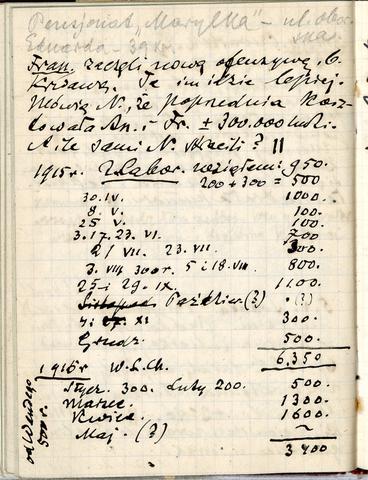 Pensjonat „Marylka" – ul.
Edwarda – 39 kr.
Fran. zaczęli nową ofenzywę, b.
krwawą. Te im idzie lepiej.
Mówią N., że poprednia kosz-
towała An. i Fr. ± 300.000 ludzi.
A ile sami N. stracili? ||
1915 r. z Labor. wziąłem: 950.
200 + 300 = 500
30. IV. 1000.
8. V. 100.
25 V. 100.
3. 17. 23. VI. 700
2/ VII. 23. VII. 300.
3. VIII 300 r. 5 i 18. VIII. 800.
25 i 29. IX. 1100.
Paździer. (?) . (?)
4 i XI 300.
Grudz. 500.
6.350
1916 r W. L. Ch.
Stycz. 300. Luty 200. 500.
Marzec. 1300.
Kwiec. 1600.
Maj. (?) ~
3400
500 r.